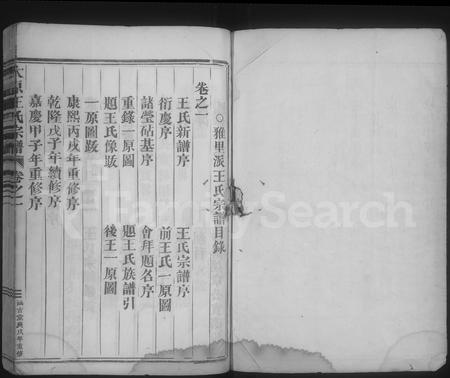 ○雅里派王氏宗譜目錄
卷之一
王氏新譜序
王氏宗譜序
衍慶序
前王氏一原圖
諸瑩砧基序
會拜題名序
重錄一原圖
題王氏族譜引
題王氏像跋
後王一原圖
一原圖跋
康熙丙戌年重修序
乾隆戊子年續修序
嘉慶甲子年重修序
太原王氏宗譜
卷之一
FamilySearch